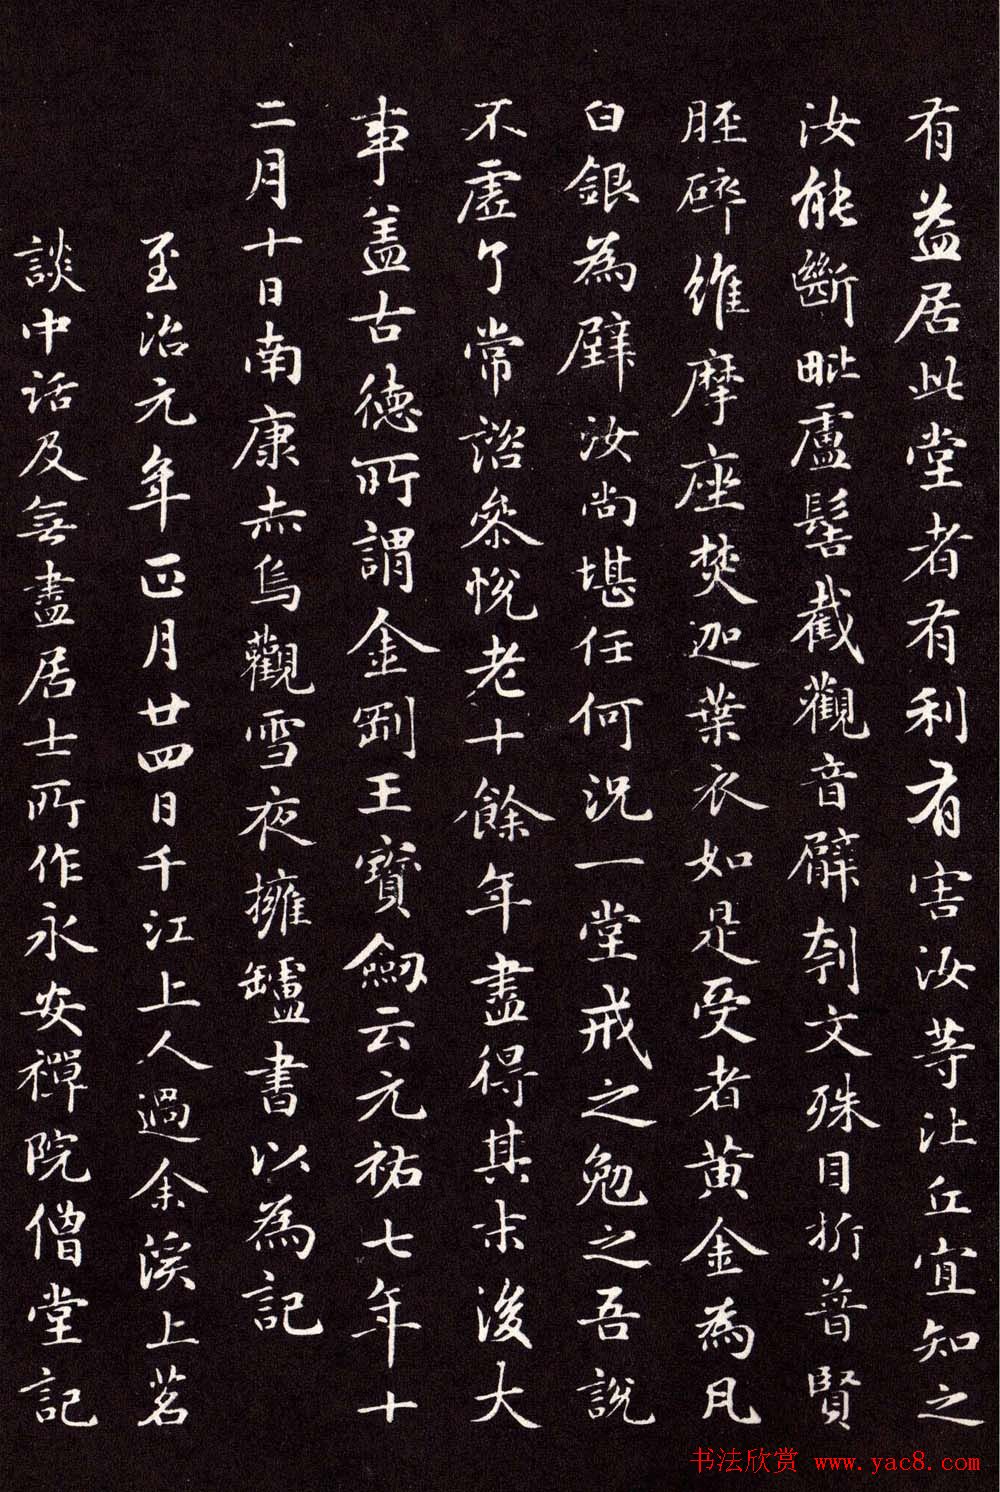 有益居此堂者有利有害汝等比丘宜知之
汝能斷毗盧髻截觀音臂刳文殊目折普賢
脛碎維摩座焚迦葉衣如是受者黃金為瓦
白銀為壁汝尚堪任何況一堂戒之勉之吾說
不虛了常諮參悅老十餘年盡得其末後大
事盖古德所謂金剛王寶劍云元祐七年十
二月十日南康赤烏觀雪夜擁鑪書以為記
至治元年正月廿四日千江上人過余溪上茗
談中話及無盡居士所作永安禪院僧堂記
书法欣赏 www.yac8.com